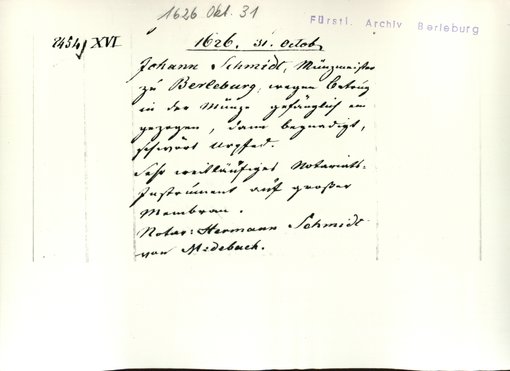 1626 Okt. 31
Fürstl. Archiv Berleburg
2454/ XVI
1626. 31. Octob.
Johann Schmidt, Münzmeister
zu Berleburg, wegen Betrug
in der Münze gefänglich ein
gezogen, dann begnadigt,
schwört Urpfed.
Sehr weitläufiges Notariats-
Instrument auf großer
Membran.
Notar: Hermann Schmidt
von Medebach.